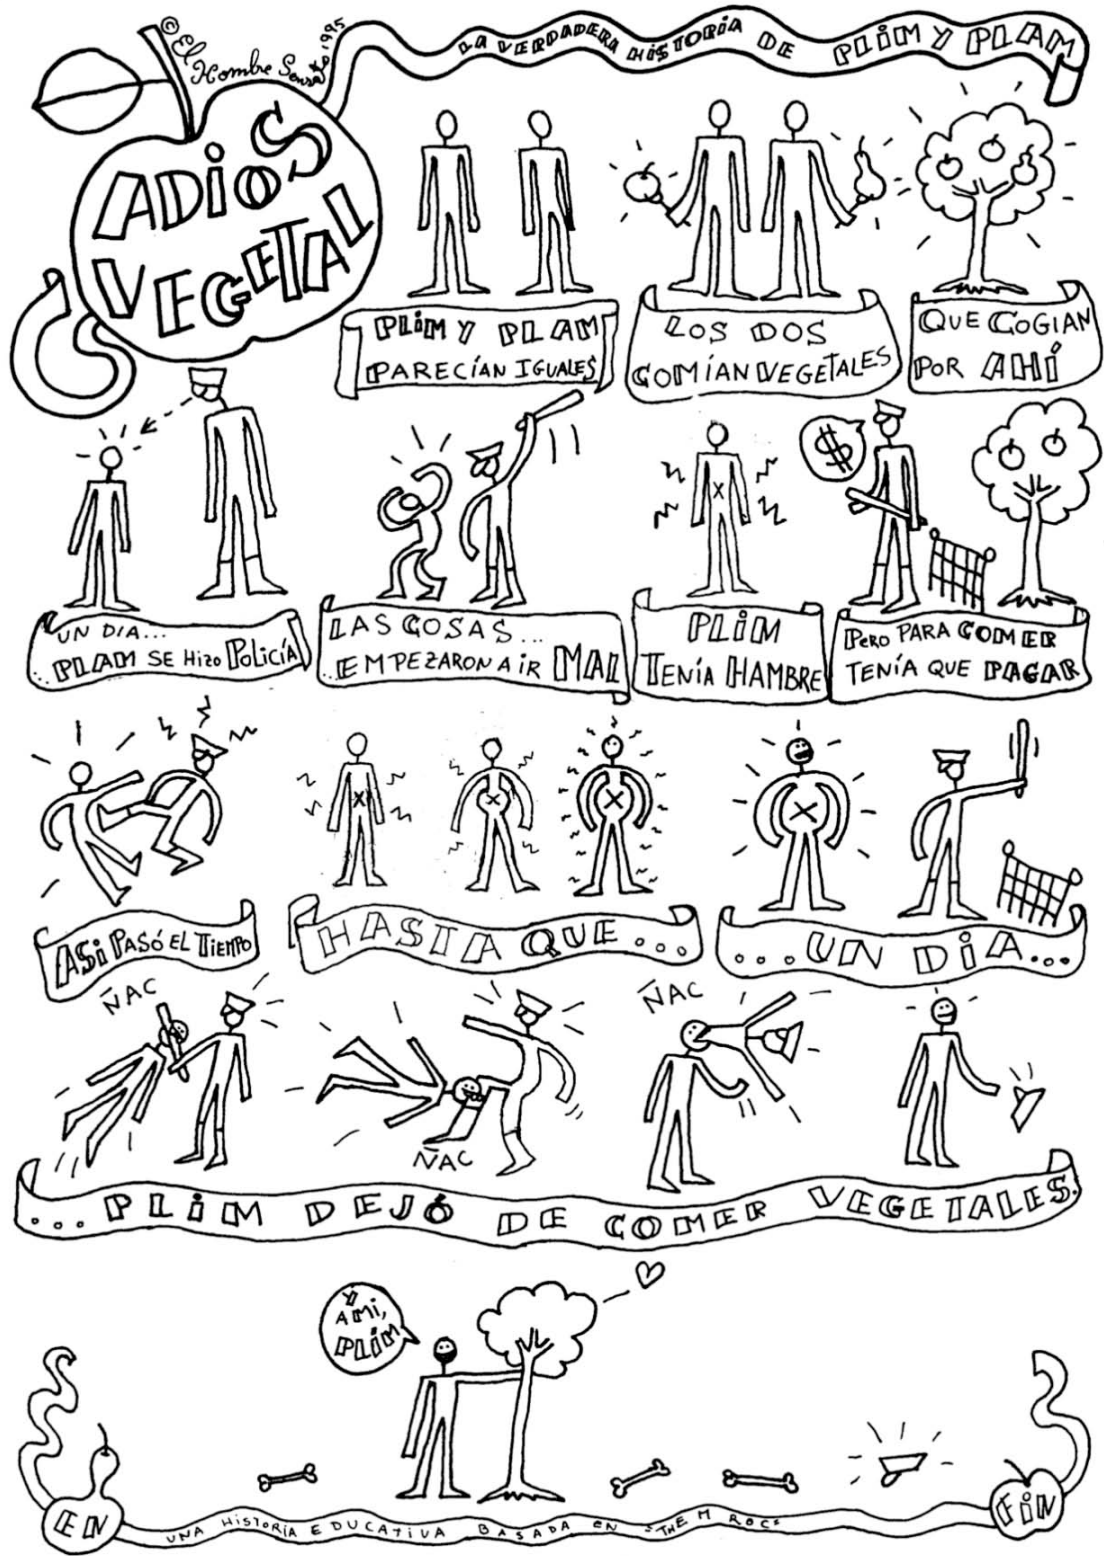 © El Hombre Sensato 1995
LA VERDADERA HISTORIA DE PLIM Y PLAM
ADIOS
VEGETAL
PLIM Y PLAM
PARECÍAN IGUALES
LOS DOS
COMÍAN VEGETALES
QUE COGIAN
POR AHÍ
UN DIA...
..PLAM SE HIZO POLICÍA
LAS COSAS...
..EMPEZARON A IR MAL
PLIM
TENÍA HAMBRE
$
PERO PARA COMER
TENÍA QUE PAGAR
ASI PASÓ EL TIEMPO
HASTA QUE...
...UN DIA...
ÑAC
ÑAC
ÑAC
...PLIM DEJÓ DE COMER VEGETALES.
Y
A MI,
PLIM
EN
UNA HISTORIA EDUCATIVA BASADA EN "THEM ROCS
FIN